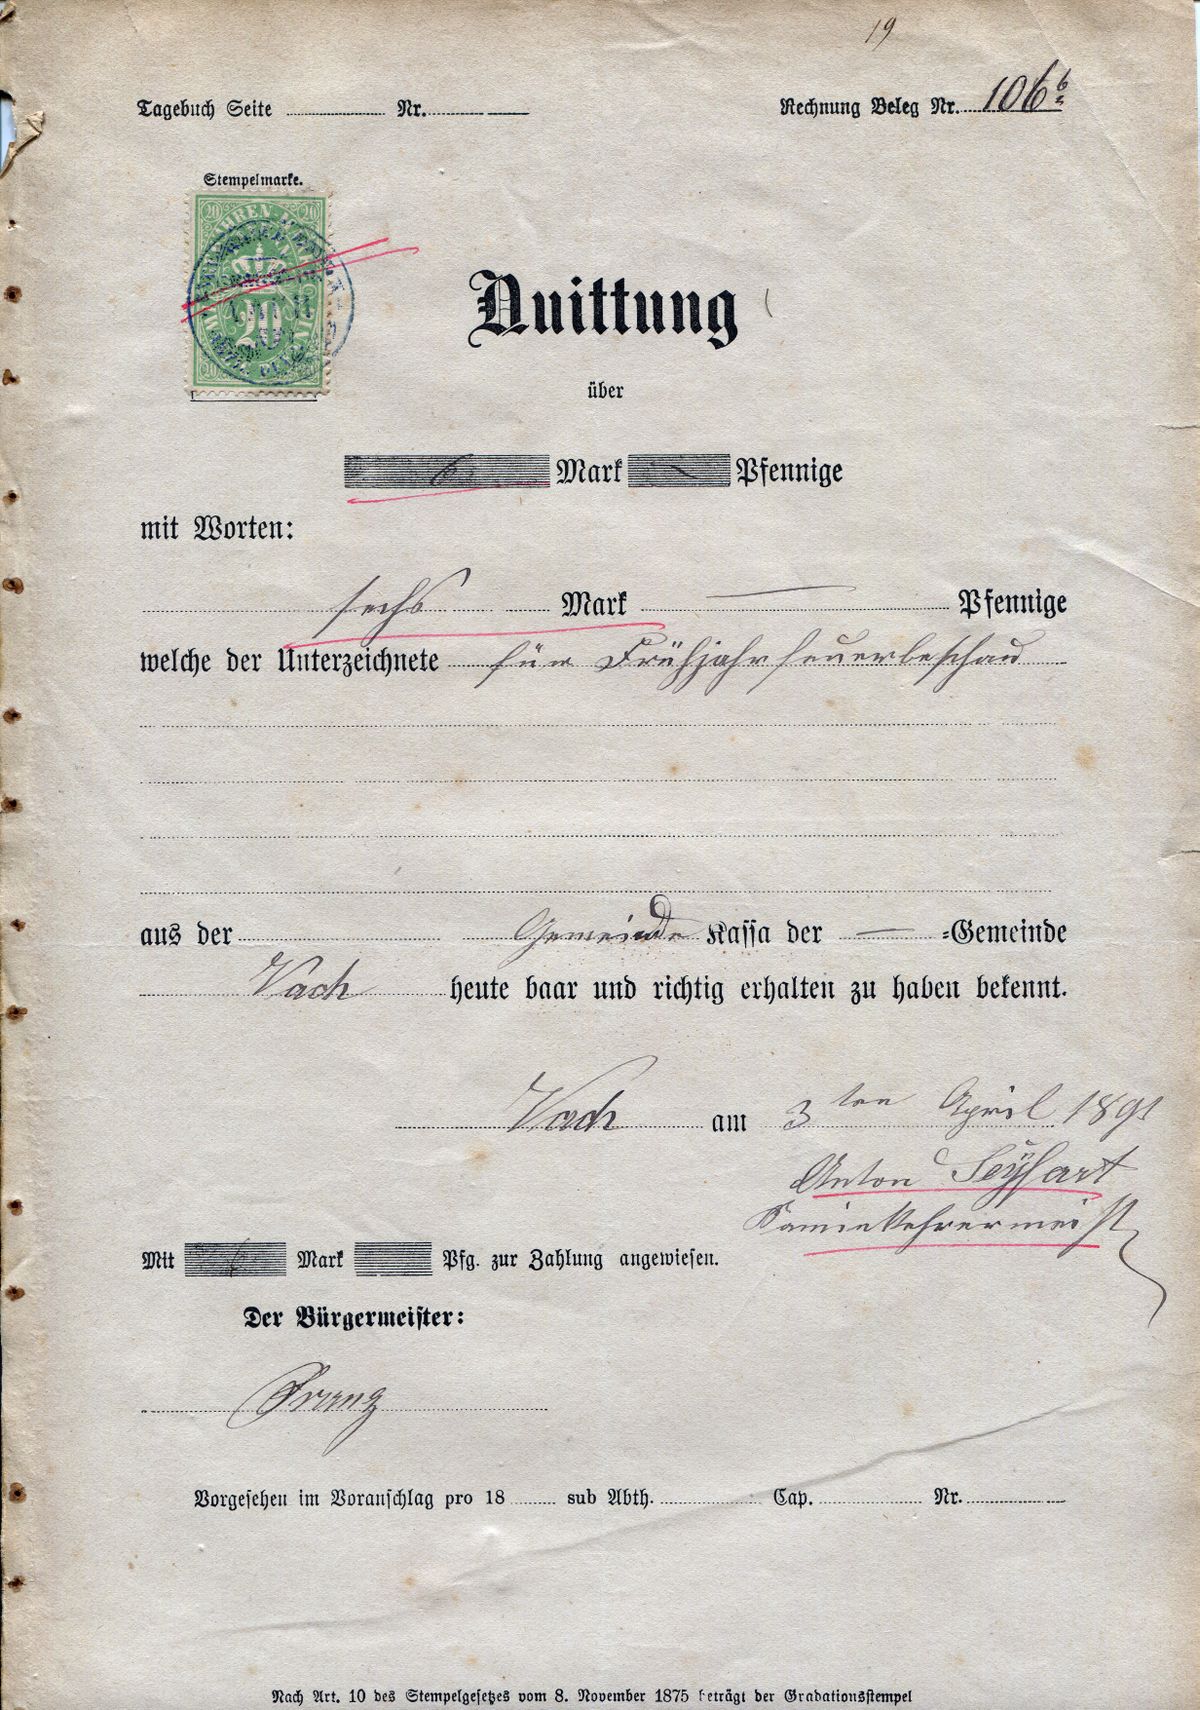 19
Tagebuch Seite Nr. Rechnung Beleg Nr. 106 b
Stempelmarke.
20 20
20
20 20
Quittung
über
6 Mark — Pfennige
mit Worten:
sechs Mark — Pfennige
welche der Unterzeichnete für Frühjahrfeuerbeschau
aus der Gemeinde Kassa der — =Gemeinde
Vach heute baar und richtig erhalten zu haben bekennt.
Vach am 3ten April 1891
Anton Seyfart
Kaminkehrermeist
Mit 6 Mark Pfg. zur Zahlung angewiesen.
Der Bürgermeister:
Vorgesehen im Voranschlag pro 18 sub Abth. Cap. Nr.
Nach Art. 10 des Stempelgesetzes vom 8. November 1875 beträgt der Gradationsstempel